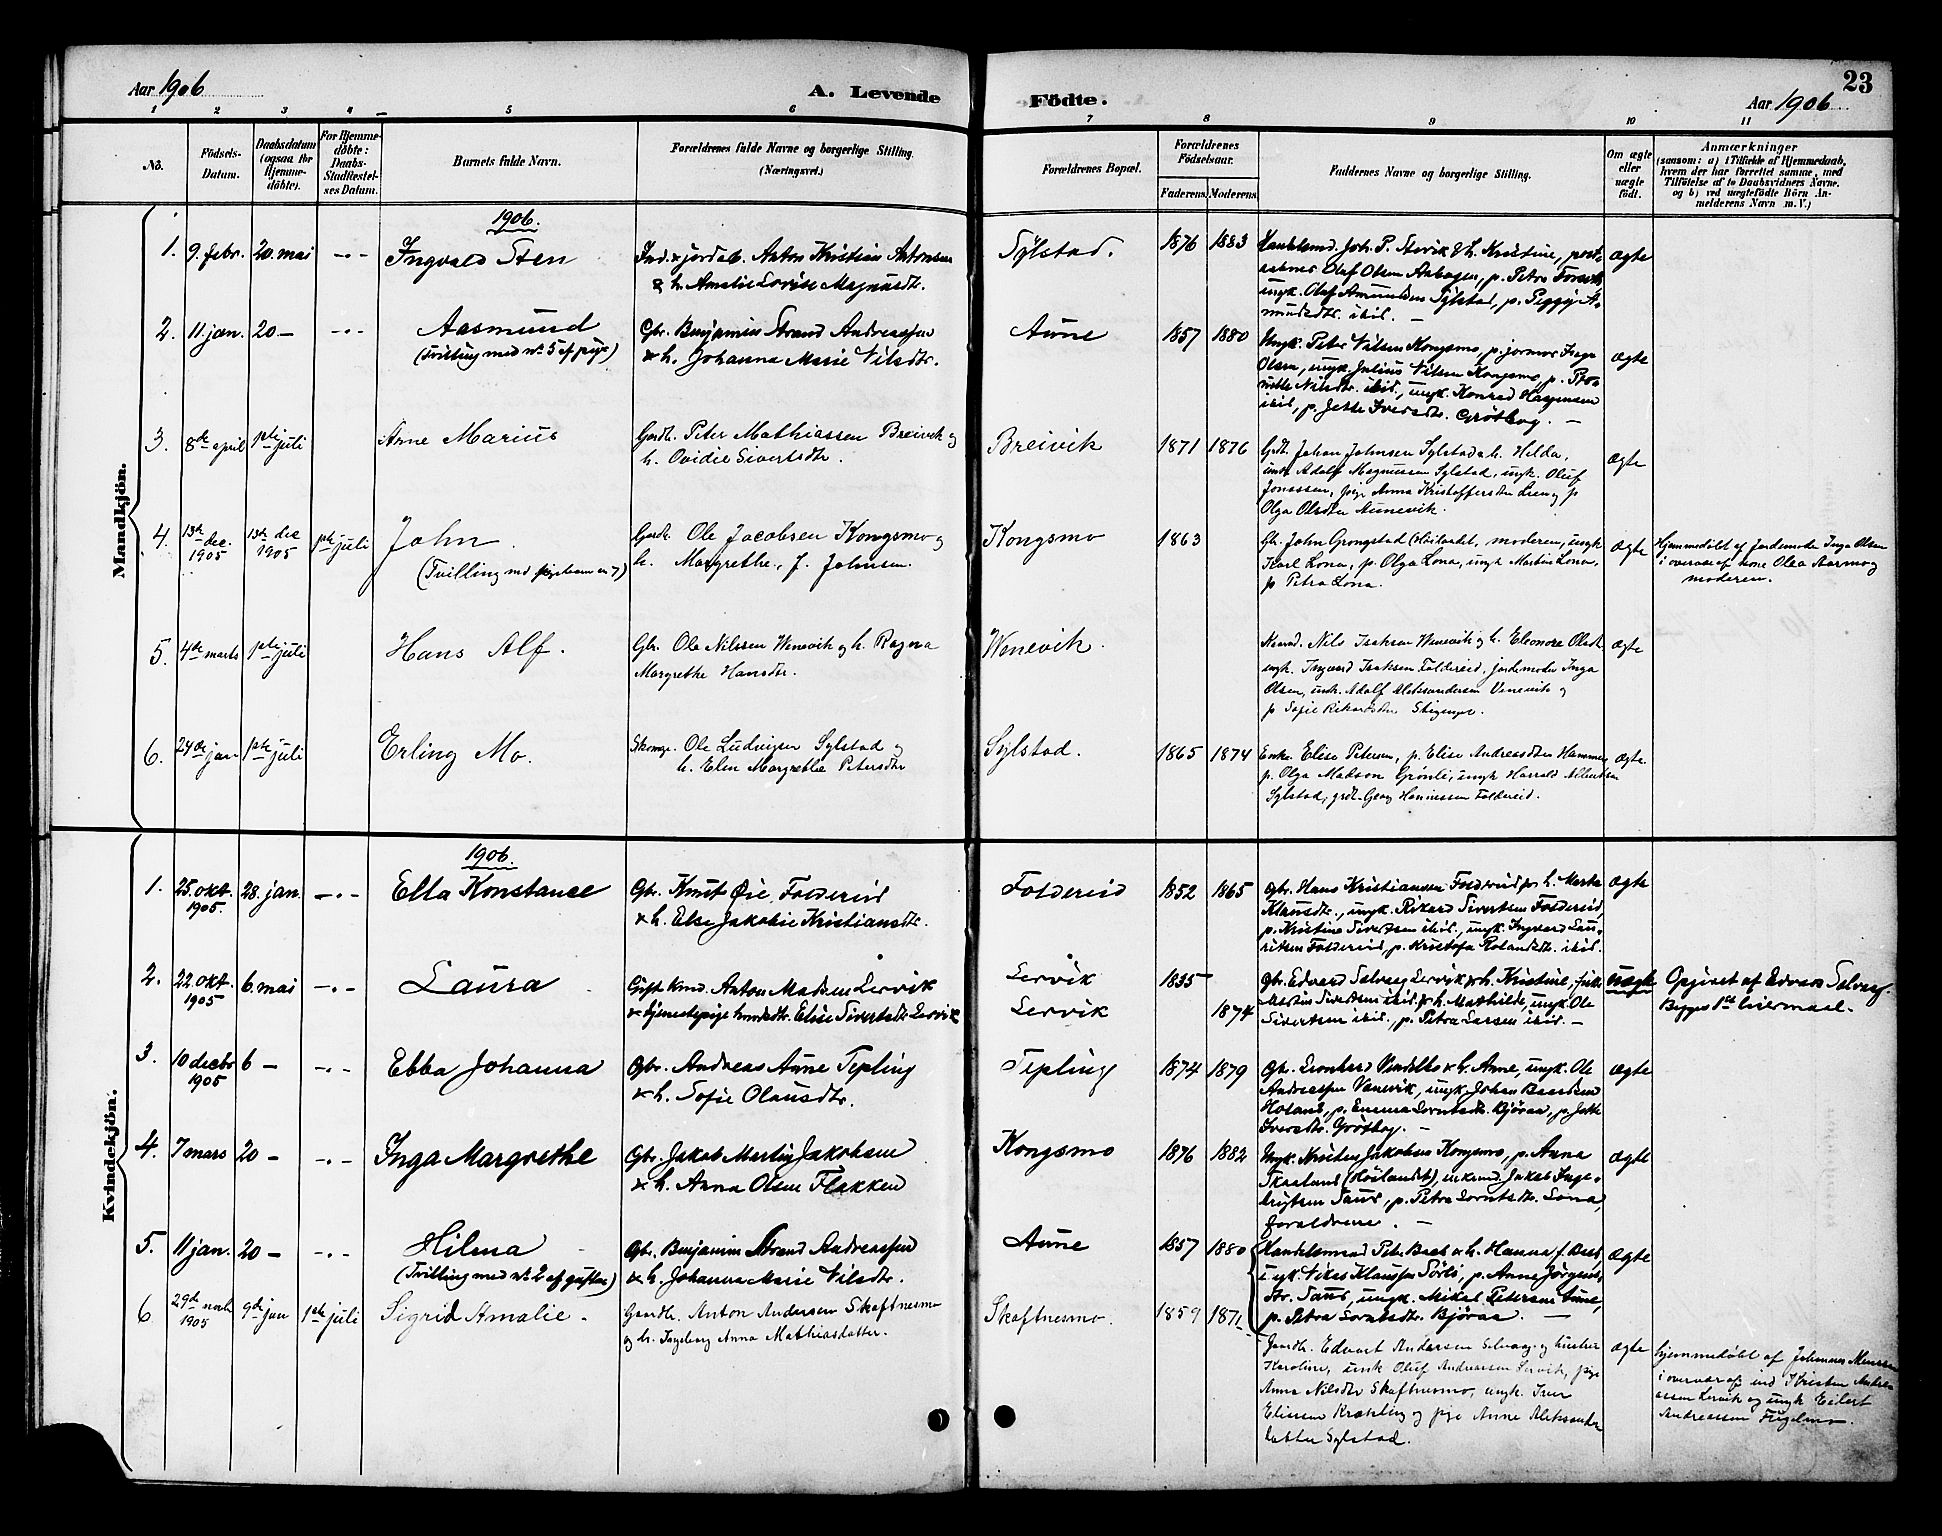 Aar 1906
A. Levende
Födte.
23
Aar 1906
1 2 3 4 5 6 7 8 9 10 11
No.
Födsels-
Datum.
Daabsdatum
(ogsaa for
Hjemme-
döbte).
For Hjemme-
döbte:
Daabs-
Stadfæstel-
ses Datum.
Barnets fulde Navn.
Forældrenes fulde Navne og borgerlige Stilling.
(Næringsvei.)
Forældrenes Bopæl.
Forældrenes
Födselsaar.
Faderens. Moderens.
Faddernes Navne og borgerlige Stilling.
Om ægte
eller
uægte
födt.
Anmærkninger
(saasom: a) i Tilfælde af Hjemmedaab,
hvem der har forrettet samme, med
Tilföielse af to Daabsvidners Navne,
og b) ved uægtefödte Börn An-
melderens Navn m. V.)
Mandkjön.
1906.
1. 9. febr. 20. mai -"- Ingvald Sten
Ind. & jordab. Anton Kristian Antonsen
& h. Amalie Lovise Magnusdtr.
Sylstad. 1876 1883
Handelsmd. Joh. P. Stervik & h. Kristine, post-
aabner Olaf Olsen Aabogen, p. Petra
ungk. Olaf Amundsen Sylstad, p. Peggy A-
mundsdtr. ibid. -
ægte
2. 11 jan. 20 - -"- Aasmund
(Tvilling med no. 5 af piger)
Gbr. Benjamin Strand Andreassen
& h. Johanna Marie Nilsdtr.
Aune 1857 1880
Ungk. Peter Nilsen Kongsmo, p. jormor Inga
Olsen, ungk. Julius Nilsen Kongsmo, p.
Nilsdtr. ibid., ungk. Konrad Hagensen
ibid, p. Jette Iversdtr. Grötbog. -
ægte
3. 8de april 1ste juli Arne Marius
Gardb. Peter Mathiassen Breivik og
h. Ovidie Sivertsdtr.
Breivik 1871 1876
Grdb. Johan Johnsen Sylstad & h. Hilda,
Adolf Magnussen Sylstad, ungk. Oluf
Jonassen, pige Anna Kristoffersdtr p
Olga Olsdtr Aunevik.
ægte
4. 13de dec. 1905 13de dec 1905 1ste juli John.
(Tvilling med pigebarn no 7)
Gardb. Ole Jacobsen Kongsmo og
h. Margrethe, f. Johnsen.
Kongsmo 1863
Gb. John Grongstad Höilandet, moderen, ungk
Karl Lona, p. Olga Lona, ungk Martin Lona,
p. Petra Lona.
ægte
Hjemmedöbt af Jordemoder Inga Olsen
i overvær af kone Olea Aarmo og
moderen.
5. 4de marts 1ste juli Hans Alf.
Gbr. Ole Nilssen Wenevik og h. Ragna
Margrethe Hansdtr.
Wenevik.
Nils Isaksen Wenevik og h. Eleonore Olsdtr
ungk. Ingvard Isaksen Foldereid, jordemoder Inga
Olsen, ungk. Adolf Aleksandersen Venevik og
p Sofie Rikardsdtr
ægte
6. 24de jan 1ste juli Erling Mo.
Ole Ludvigsen Sylstad og
h. Elen Margrethe Petersdtr
Sylstad. 1865 1874
Enke Elise Petersen, p. Elise Andreasdtr Hammer,
p. Olga Madsen Grönli, ungk Harald Albertsen
Sylstad, grdb. Georg Hannessen Foldereid.
ægte.
Kvindekjön.
1906.
1. 25. okt. 1905. 28. jan. -"- Ella Konstance
Gbr. Knut Öie, Foldereid
& h. Else Jakobie Kristiansdtr.
Foldereid 1852 1865
Gbr. Hans Kristiansen Foldereid & h. Marta
Klausdtr., ungk. Rikard Sivertsen Foldereid,
p. Kristine Sivertsen ibid., ungk. Ingvard Lau-
ritsen Foldereid, p. Kristofa Rolandsdtr. ibid.
ægte
2. 22. okt. 1905 6. mai -"- Laura
Gift kmd. Anton Madsen Lervik
& tjenestepige Elise Sivertsdtr Lervik
Lervik
Lervik
1835 - 1874
Gbr. Edvard Selvaag Lervik & h. Kristine,
Martin Sivertsen ibid. & h. Mathilde, ungk. Ole
Sivertsen ibid., p. Petra Larsen ibid. -
uægte
Opgivet af Edvard Selvaag.
Begges 1ste leiermaal.
3. 10 decbr 1905 6 - -"- Ebba Johanna
Gbr. Andreas Aune Tepling
& h. Sofie Olausdtr.
Tepling 1874 1879
Gbr. Leonhard & h. Anne, ungk. Ole
Andreassen Venevik, ungk. Johan Baardsen
Holand, p. Emma Lorntsdtr. Björaa, p. Jette
Iversdtr. Grötbog. -
ægte
4. 7 mars 20 - -"- Inga Margrethe
Gbr. Jakob Martin Jakobsen
& h. Anna Olsen Flakken
Kongsmo 1876 1882
Ungk. Kristen Jakobsen Kongsmo, p. Anna
Skarland (Höilandet), enkemd. Jakob Inge-
brigtsen Saus, p. Petra Lorntsdtr. Lona,
foraldrene. -
ægte
5. 11 jan. 20 - -"- Hilma
(Tvilling med no. 2 af gutter)
Gbr. Benjamin Strand Andreassen
& h. Johanna Marie Nilsdtr.
Aune 1857 1880
Handelsmand Petr & h. Hanna f.
ungk. Nikes Klaussen Sörli, p. Anne Jörgens-
dtr. Saus, ungk. Mikal Petersen Aune,
p. Petra Lorntsdtr. Björaa. -
ægte
6. 29de novb. 1905 9de jan 1ste juli Sigrid Amalie.
Gaardb. Anton Andersen Skaftnesmo
og h. Ingeborg Anna Mathiasdatter.
Skaftnesmo. 1859 1871
Gaardb. Edvart Andersen Selvaag og hustru
Karoline, ungk Oluf Andreassen Lervik, pige
Anna Nilsdtr Skaftnesmo, ungk. Iver
Eliassen Kräkling og pige Anne Aleksander-
datter Sylstad.
ægte
Hjemmedöbt af Johannes
i overvær af ind Kristen Andre-
assen Lervik og ungk Eidert
Andreassen Fugelmo.